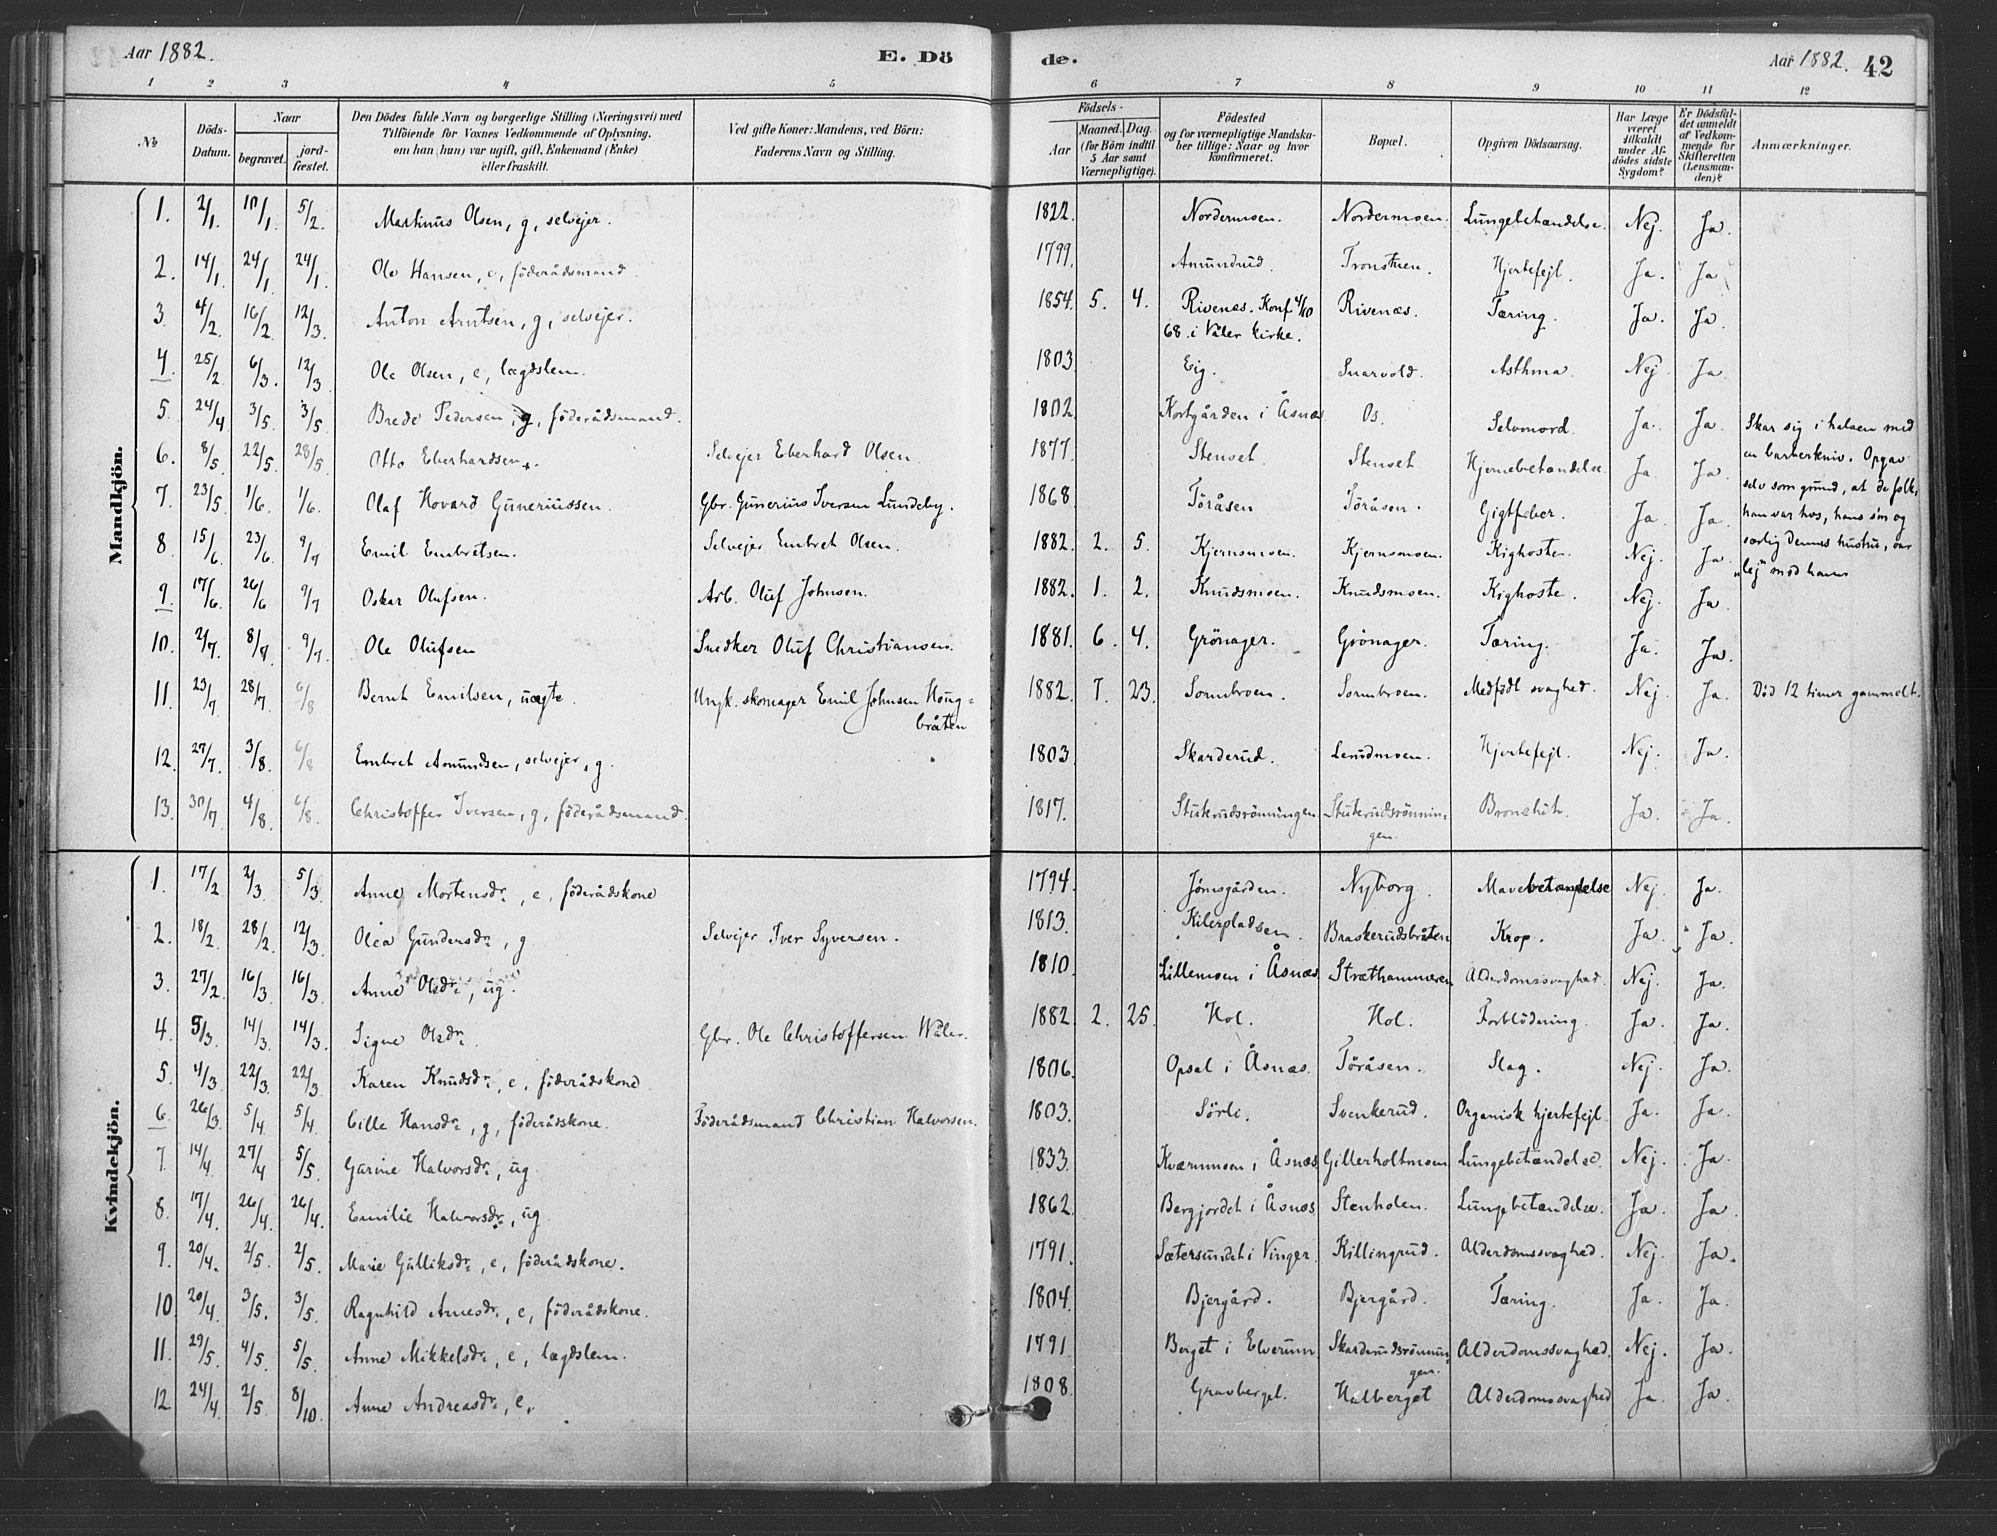 Aar 1882. E. Dö de. Aar 1882. 42
1 2 3 4 5 6 7 8 9 10 11 12
No Döds-Datum. Naar begravet. jordfæstet. Den Dödes fulde Navn og borgerlige Stilling (Næringsvei) med Tilföiende for Voxnes Vedkommende af Oplysning, om han (hun) var ugift, gift, Enkemand (Enke) eller fraskilt. Ved gifte Koner: Mandens, ved Börn: Faderens Navn og Stilling. Födsels- Aar Maaned. Dag. (for Börn indtil 5 Aar samt Værnepligtige). Födested og for værnepligtige Mandskaber tillige: Naar og hvor konfirmeret. Bopæl. Opgiven Dödsaarsag. Har Læge været tilkaldt under Afdödes sidste Sygdom? Er Dödsfaldet anmeldt af Vedkommende for Skifteretten (Lensmanden)? Anmærkninger.
Mandkjön.
1. 2/1. 10/1. 5/2. Martinus Olsen, g, selvejer. 1822. Nordermoen. Nordermoen. Lungebetændelse. Nej. Ja.
2. 14/1. 24/1. 24/1. Ole Hansen, e, föderådsmand. 1799. Amundrud. Tronstuen. Hjertefejl. Ja. Ja
3. 4/2. 16/2. 12/3. Anton Arntsen, g, selvejer. 1854. 5. 4. Rivenæs. Konf 4/10 Rivenæs. Tæring. Ja. Ja.
68. i Våler kirke.
4. 25/2. 6/3. 12/3. Ole Olsen, e, lægdslem. 1803 Eig. Snarvold. Asthma. Nej. Ja.
5. 24/4 3/5. 3/5 Brede Pedersen, g, föderådsmand. 1802. Kortgården i Åsnæs Os. Selvmord. Ja. Ja. Skar sig i halsen med
6. 8/5. 22/5. 28/5 Otto Eberhardsen. Selvejer Eberhard Olsen. 1877. Stenset. Stenset. Hjernebetændelse. Ja. Ja. en barberkniv. Opgav
selv som grund, at de folk,
7. 23/5 1/6. 1/6. Olaf Hovard Guneriussen. Gbr. Gunerius Iversen Lundeby. 1868. Töråsen Töråsen. Gigtfeber. Ja Ja. han var hos, hans sön og
8. 15/6. 23/6. 9/7 Emil Embretsen. Selvejer Embret Olsen. 1882. 2. 5. Kjernsmoen. Kjernsmoen. Kighoste. Nej. Ja. særlig dennes hustru, var
9. 17/6. 26/6 9/7 Oskar Olufsen. Arb. Oluf Johnsen. 1882. 1. 2. Knudsmoen. Knudsmoen. Kighoste. Nej. Ja. "lej" mod ham
10. 2/7. 8/7 9/7 Ole Olufsen Snedker Oluf Christiansen. 1881. 6. 4. Grönager. Grönager. Tæring. Ja. Ja.
11. 23/7 28/7. 6/8 Bernt Emilsen, uægte. Ungk. skomager Emil Johnsen Houg- 1882. 7. 23. Sormbroen. Sormbroen. Medfödt svaghed. Nej. Ja. Död 12 timer gammelt.
bråten
12. 27/7. 3/8. 6/8 Embret Amundsen, selvejer, g. 1803. Skarderud. Lendmoen. Hjertefejl. Nej. Ja.
13. 30/7 4/8. 6/8. Christoffer Iversen, g, föderådsmand. 1817. Stukerudsrönningen Stukerudsrönnin- Bronchit. Ja. Ja.
gen.
Kvindekjön.
1. 17/2 2/3. 5/3. Anne Mortensdr., e, föderådskone 1794. Jönsgården. Nyborg. Mavebetændelse Nej. Ja.
2. 18/2. 28/2. 12/3. Olea Gundersdr., g Selvejer Iver Syversen. 1813. Kilerpladsen. Braskerudsbråten Krop. Ja. Ja.
3. 27/2 16/3 16/3 Anne Olsdr., ug. 1810. Lillemoen i Åsnæs Stræthammeren Alderdomssvaghed. Nej. Ja.
4. 5/3. 14/3. 14/3. Signe Olsdr. Gbr. Ole Christoffersen Våler. 1882. 2. 25. Hol. Hol. Forblödning. Ja. Ja.
5. 4/3. 22/3. 22/3. Karen Knudsdr., e, föderådskone. 1806. Opsal i Åsnæs. Töråsen. Slag. Nej. Ja.
6. 26/3 5/4 5/4. Cille Hansdr., g, föderådskone. Föderådsmand Christian Halvorsen. 1803. Sörli. Svenkerud. Organisk hjertefejl. Ja. Ja.
7. 14/4. 27/4 5/5. Garine Halvorsdr., ug 1833. Kværnmoen i Åsnæs Gillerholtmoen Lungebetændelse. Nej. Ja.
8. 17/4. 26/4. 26/4. Emilie Halvorsdr., ug. 1862. Bergjordet i Åsnæs. Stenholen. Lungebetændelse. Ja. Ja.
9. 20/4. 2/5. 2/5. Marie Gulliksdr., e, föderådskone. 1791. Sætersundet i Vinger. Killingrud. Alderdomssvaghed. Nej. Ja.
10. 20/4. 3/5. 3/5. Ragnhild Arnesdr., e, föderådskone. 1804. Bjergård. Bjergård. Tæring. Ja. Ja.
11. 29/5. 4/5. 5/5. Anne Mikkelsdr., e, lægdslem. 1791. Berget i Elverum Skarderudsrönnin- Alderdomssvaghed. Nej. Ja.
gen.
12. 24/4. 2/5. 8/10. Anne Andreasdr., e. 1808. Gravberget. Halberget Alderdomssvaghed Ja. Ja.